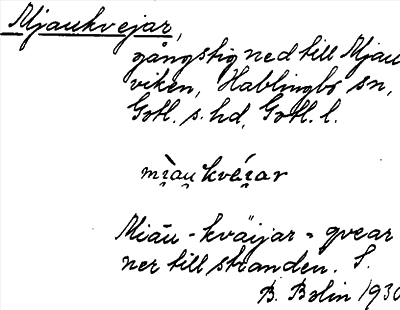 Mjaukvejar,
gångstig ned till Mjau
viken, Hablingbo sn,
Gotl. s. hd, Gotl. l.
mi̯au kvéi̯ar
Miāu - kväijar = qvear
ner till stranden. S.
B. Bolin 1930